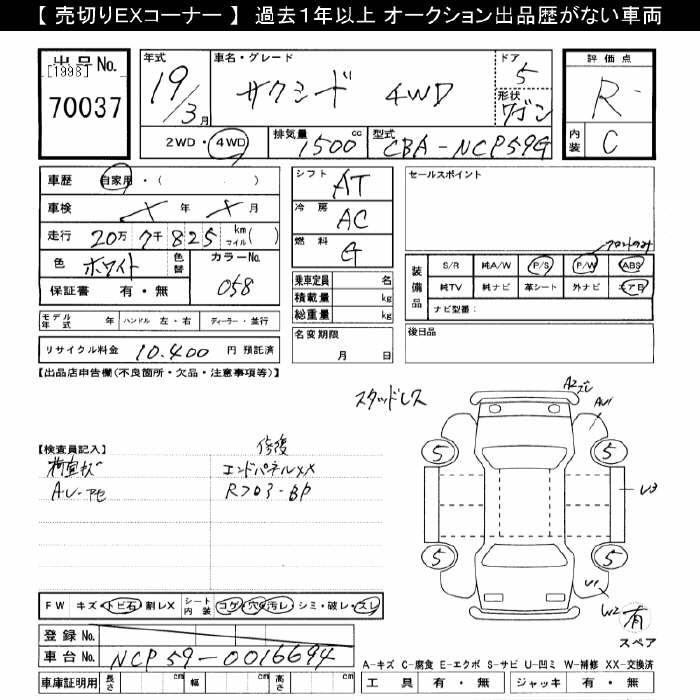 【 売切りEXコーナー 】 過去１年以上 オークション出品歴がない車両
出品No.
[1998]
70037
年式 19/3月
車名・グレード サクシード 4WD
ドア 5
形状 ワゴン
2WD・4WD
排気量 1500cc
型式 CBA-NCP59G
評価点 R
内装 C
車歴 自家用・( )
車検 メ 年 メ 月
走行 20万 7千 825 km マイル( )
色 ホワイト 色替
カラーNo. 058
保証書 有・無
モデル年式 年 ハンドル 左・右 ディーラー・並行
リサイクル料金 10.400 円 預託済
シフト AT
冷房 AC
燃料 G
乗車定員 名
積載量 kg
総重量 kg
名変期限 月 日
セールスポイント
フロントのみ
装備品 S/R 純A/W P/S P/W ABS
純TV 純ナビ 革シート 外ナビ エアB
ナビ型番：
後日品
【出品店申告欄(不良箇所・欠品・注意事項等)】
スタッドレス
A2ズレ
AU1
【検査員記入】
修復
荷室キズ
エンドパネルXX
AU-PE
Rフロア-BP
5 5
U3
5 5
U1
W2
有
スペア
FW キズ・トビ石・割レX シート内装 コゲ・穴・汚レ・シミ・破レ・スレ
登録 No.
車台 No. NCP59-0016694
車庫証明用 長さ cm 幅 cm 高さ cm
A-キズ C-腐食 E-エクボ S-サビ U-凹ミ W-補修 XX-交換済
工具 有・無 ジャッキ 有・無